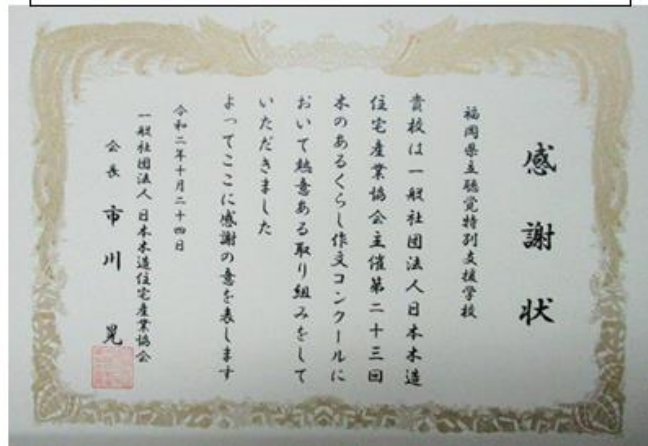 感謝状
福岡県立聴覚特別支援学校
貴校は一般社団法人日本木造
住宅産業協会主催第二十三回
木のあるくらし作文コンクールに
おいて熱意ある取り組みをして
いただきました
よってここに感謝の意を表します
令和二年十月二十四日
一般社団法人日本木造住宅産業協会
会長 市川 晃